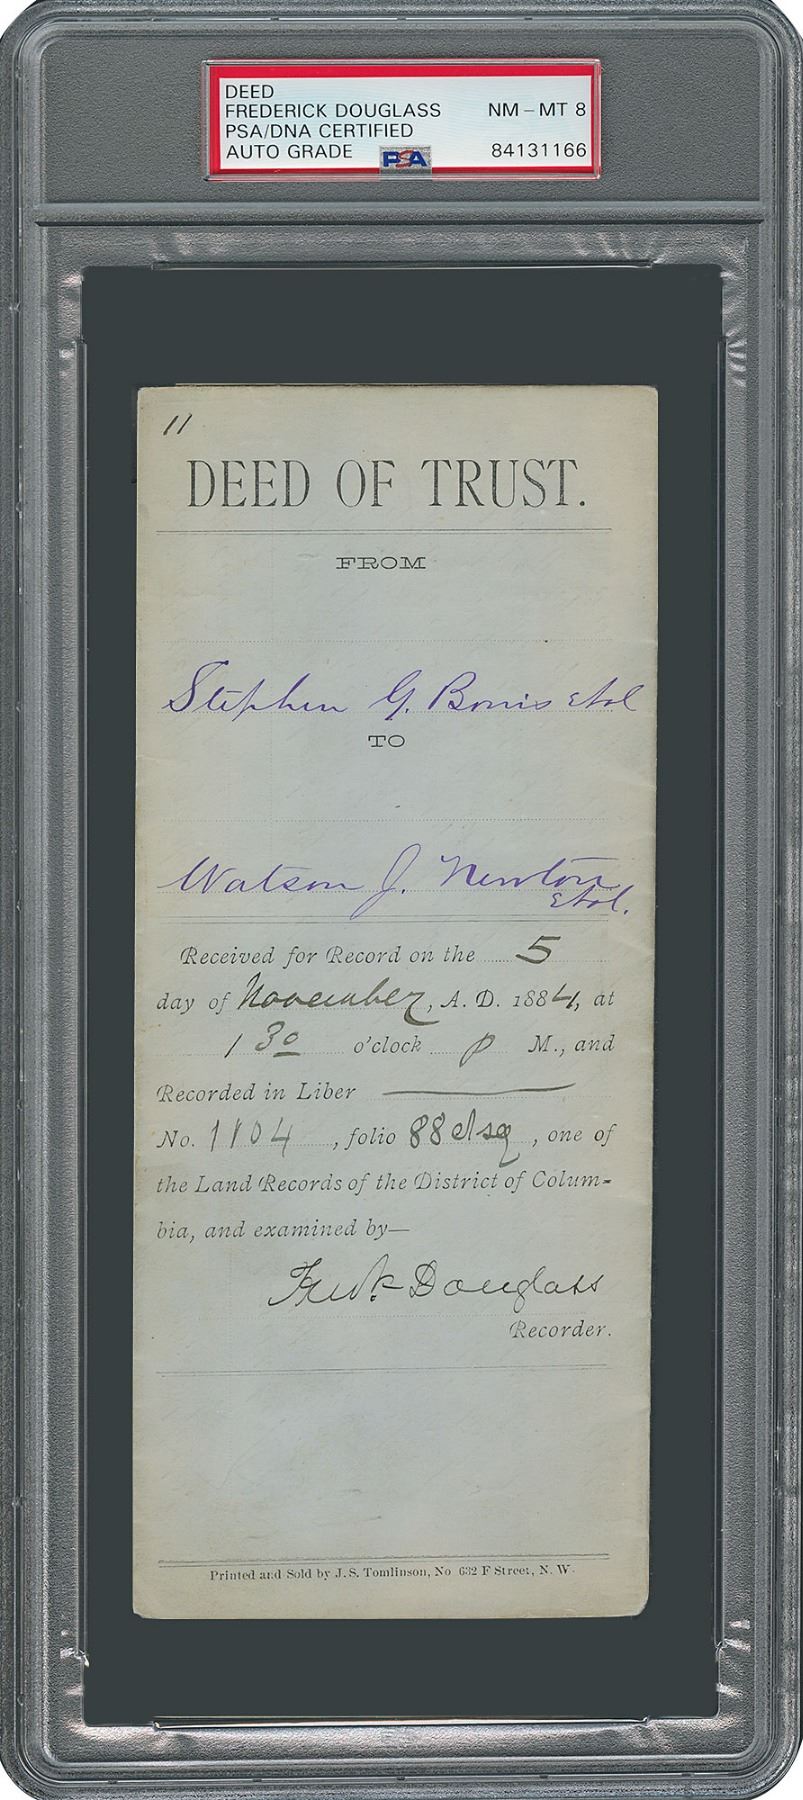 DEED
FREDERICK DOUGLASS NM-MT 8
PSA/DNA CERTIFIED
AUTO GRADE PSA 84131166
11
DEED OF TRUST.
FROM
Stephen G. et al
TO
Watson J. Newton
et al.
Received for Record on the 5
day of November, A. D. 1884, at
1 30 o'clock P M., and
Recorded in Liber
No. 1104, folio 88 et sq, one of
the Land Records of the District of Colum=
bia, and examined by—
Fredk Douglass
Recorder.
Printed and Sold by J. S. Tomlinson, No 632 F Street, N. W.